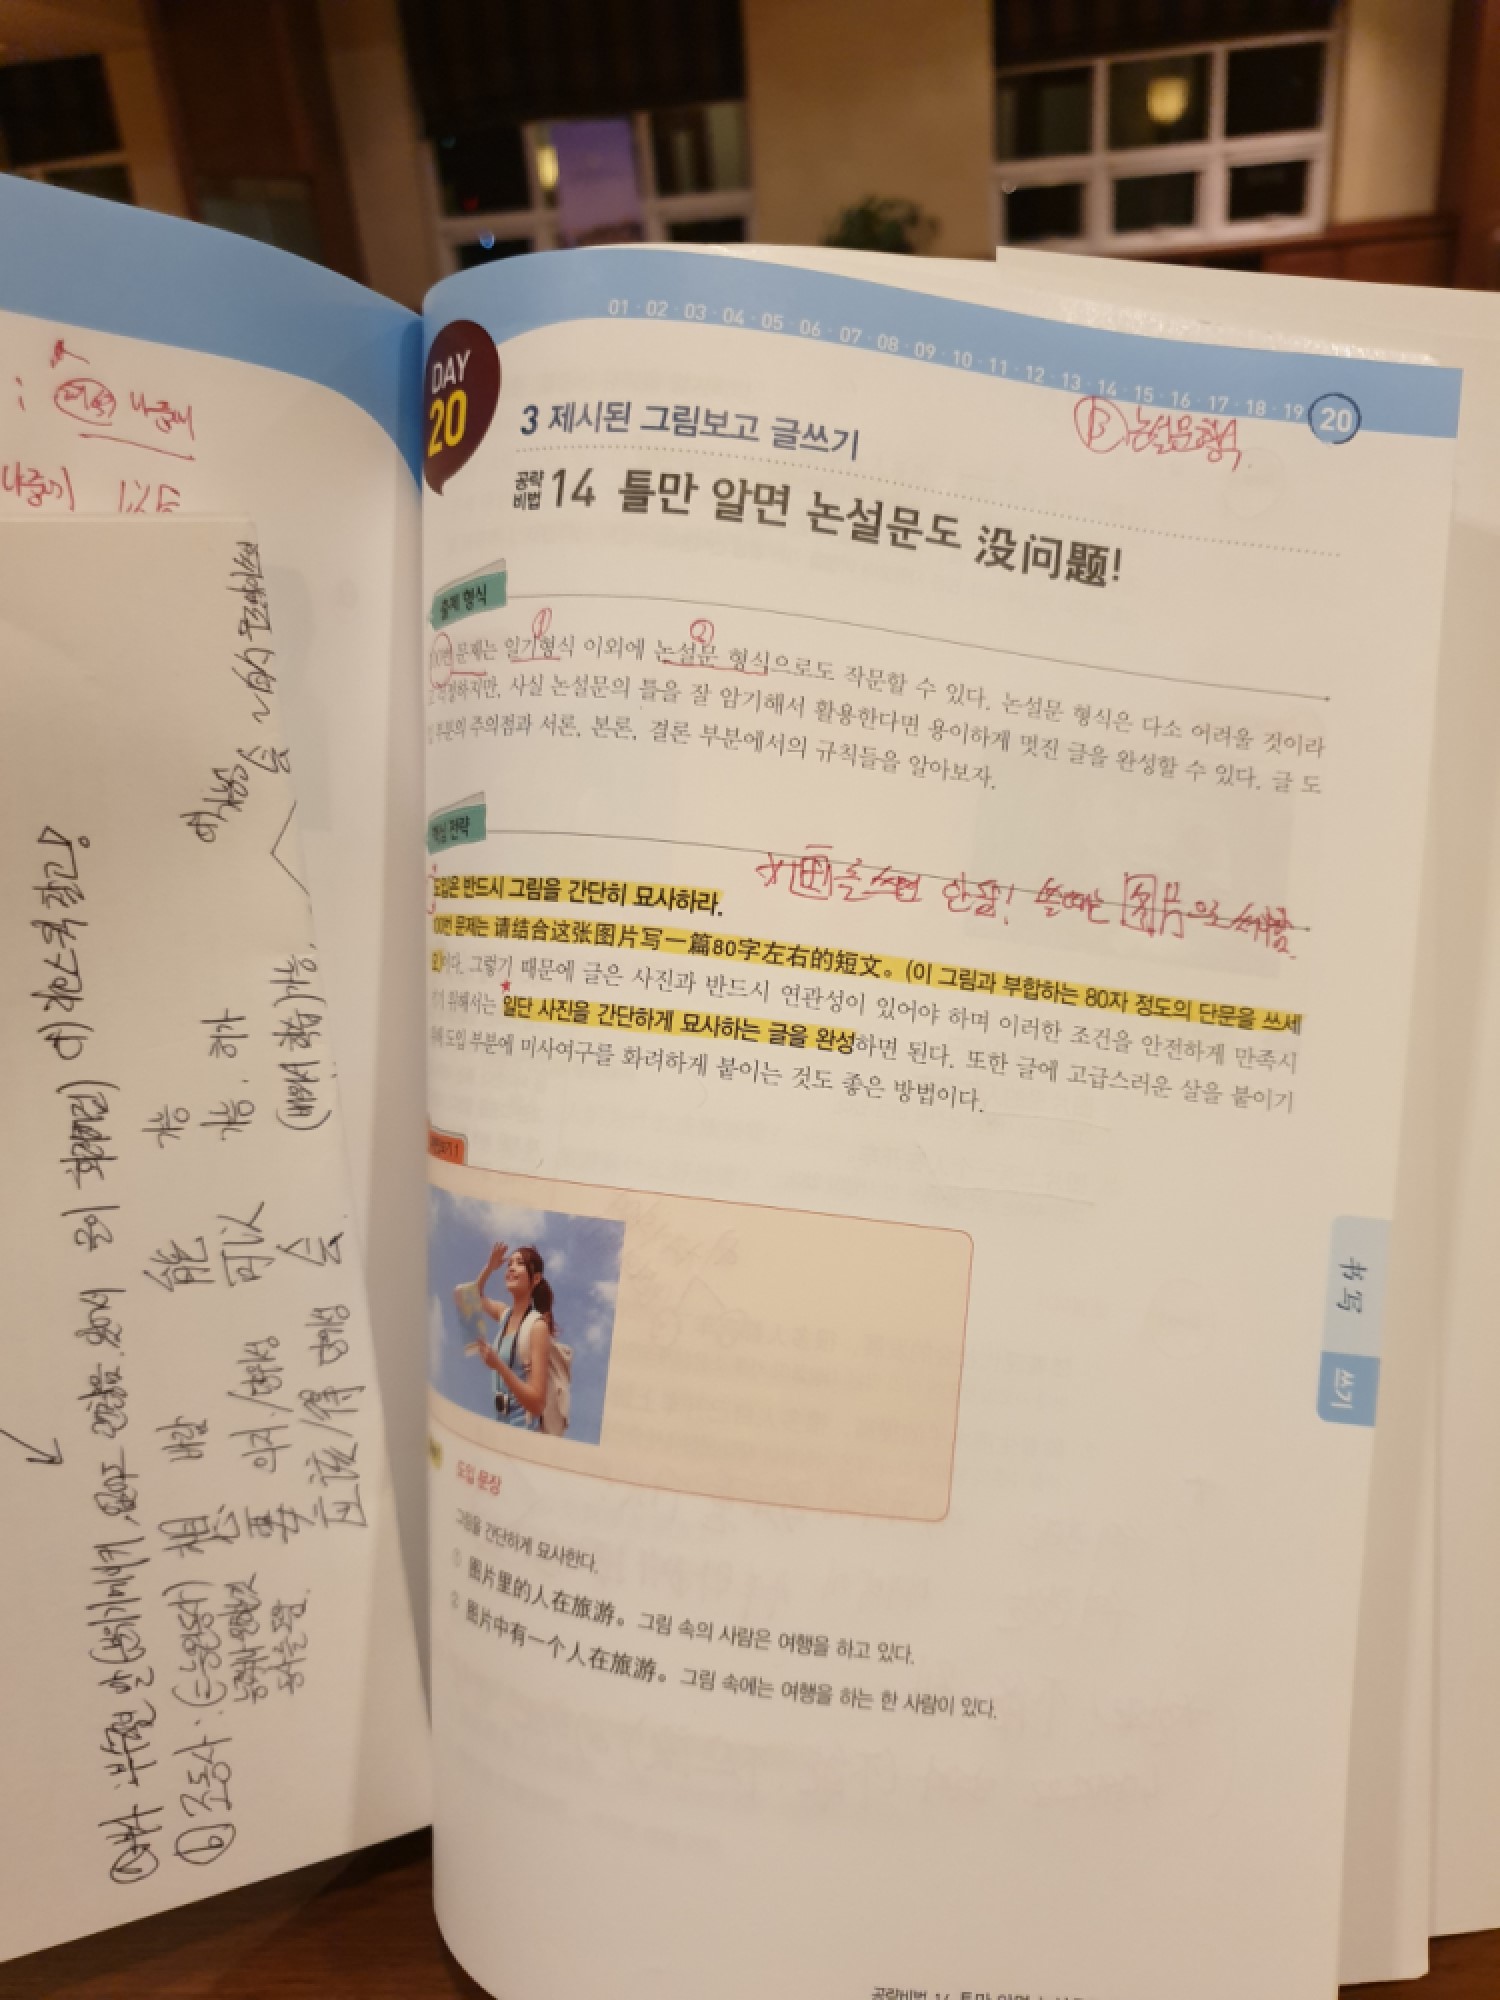 나중에
나중에
01 · 02 · 03 · 04 · 05 · 06 · 07 · 08 · 09 · 10 · 11 · 12 · 13 · 14 · 15 · 16 · 17 · 18 · 19 20
DAY
20
3 제시된 그림보고 글쓰기
B 논설문형식
공략
비법 14 틀만 알면 논설문도 没问题!
출제 형식
① ②
문제는 일기형식 이외에 논설문 형식으로도 작문할 수 있다. 논설문 형식은 다소 어려울 것이라
걱정하지만, 사실 논설문의 틀을 잘 암기해서 활용한다면 용이하게 멋진 글을 완성할 수 있다. 글 도
부분의 주의점과 서론, 본론, 결론 부분에서의 규칙들을 알아보자.
핵심 전략
쓰면 안됨! 쓸때는 图片으로
도입은 반드시 그림을 간단히 묘사하라.
100번 문제는 请结合这张图片写一篇80字左右的短文。(이 그림과 부합하는 80자 정도의 단문을 쓰세
요)이다. 그렇기 때문에 글은 사진과 반드시 연관성이 있어야 하며 이러한 조건을 안전하게 만족시
키기 위해서는 일단 사진을 간단하게 묘사하는 글을 완성하면 된다. 또한 글에 고급스러운 살을 붙이기
위해 도입 부분에 미사여구를 화려하게 붙이는 것도 좋은 방법이다.
도입 문장
그림을 간단하게 묘사한다.
① 图片里的人在旅游。그림 속의 사람은 여행을 하고 있다.
② 图片中有一个人在旅游。그림 속에는 여행을 하는 한 사람이 있다.
书写
쓰기
ⓑ 조동사 : 想 바람 能 가능
要 의지/당위성 可以 가능. 허가
应该/得 당위성 会 (배워서 학습)가능.
공략비법 14